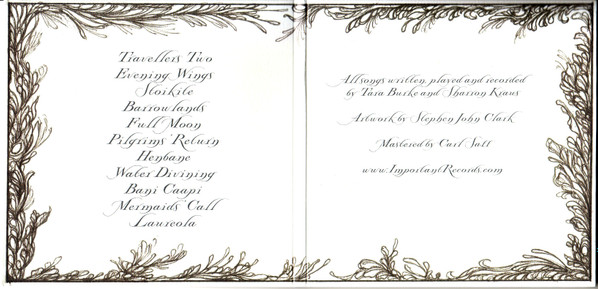 Travellers Two
Evening Wings
Sloikile
Barrowlands
Full Moon
Pilgrims' Return
Henbane
Water Divining
Bani Caapi
Mermaids' Call
Laureola
All songs written, played and recorded
by Tara Burke and Sharron Kraus
Artwork by Stephen John Clark
Mastered by Carl Saff
www.ImportantRecords.com